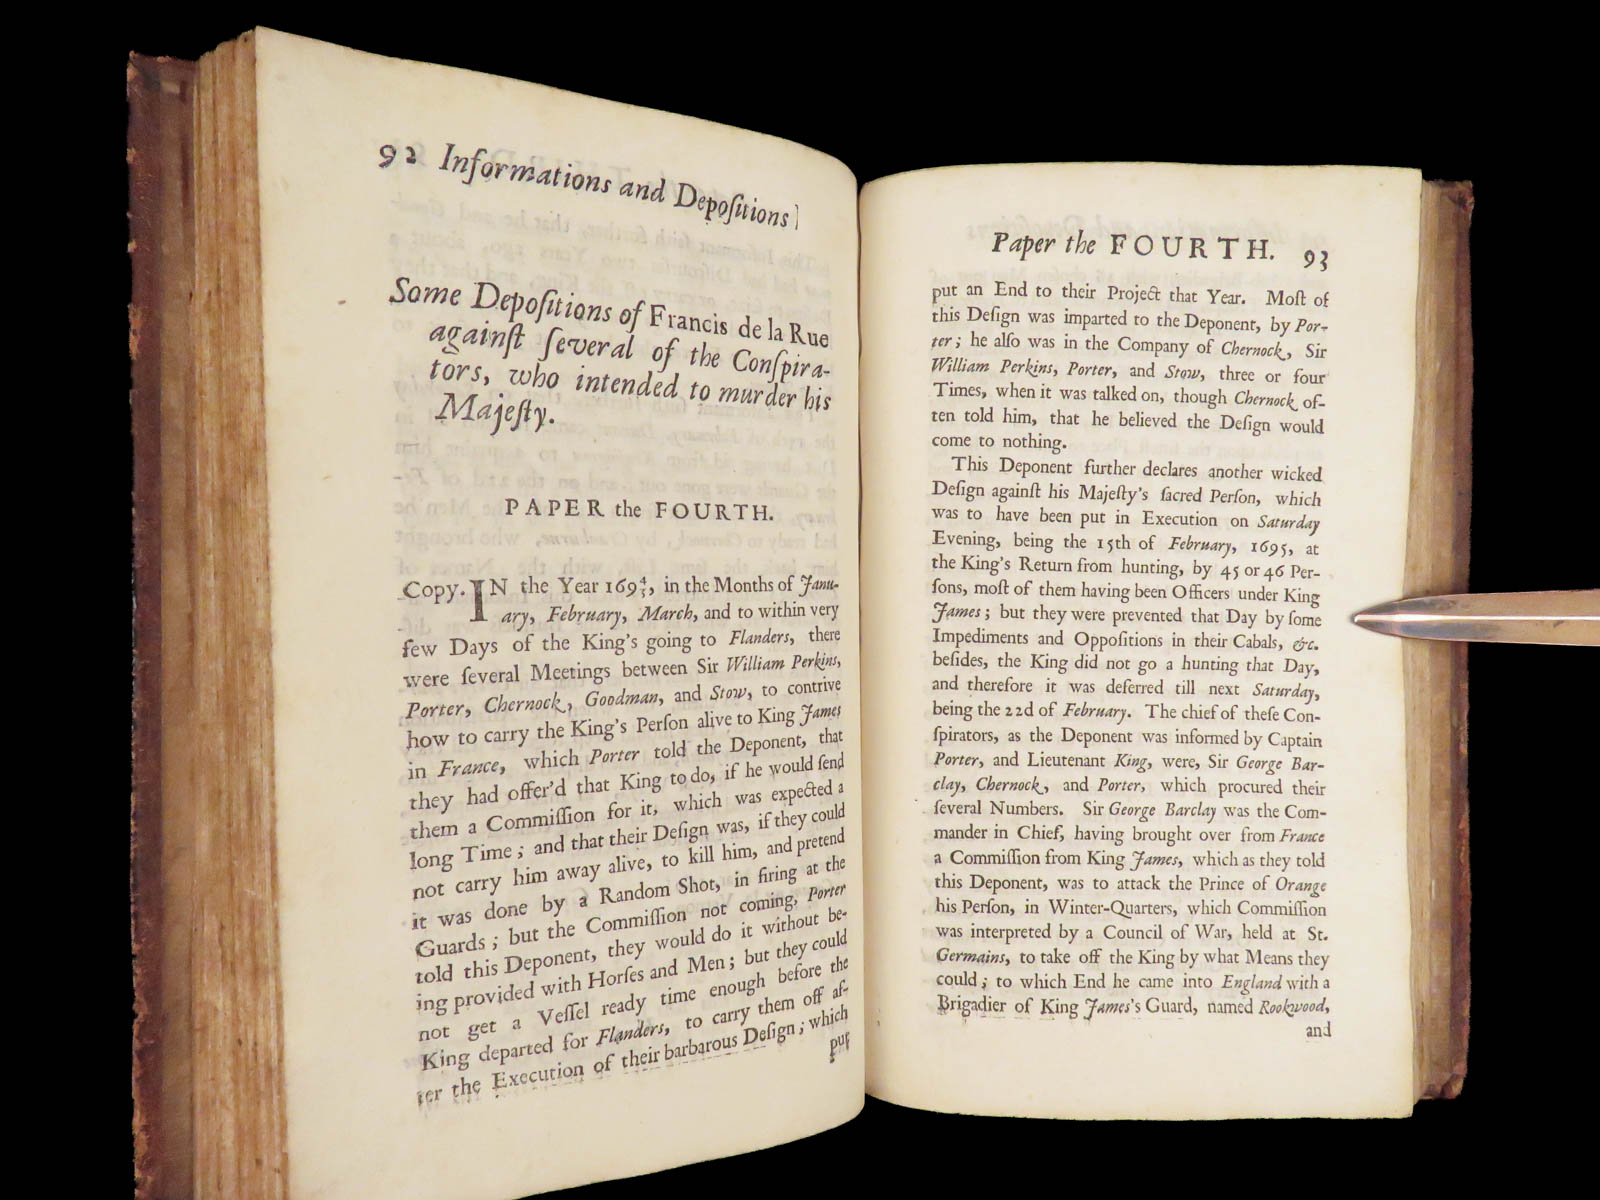 92 Informations and Depoſitions]
Some Depoſitions of Francis de la Rue
againſt ſeveral of the Conſpira-
tors, who intended to murder his
Majeſty.
PAPER the FOURTH.
Copy. IN the Year 169⅘, in the Months of Janu-
ary, February, March, and to within very
few Days of the King's going to Flanders, there
were ſeveral Meetings between Sir William Perkins,
Porter, Chernock, Goodman, and Stow, to contrive
how to carry the King's Perſon alive to King James
in France, which Porter told the Deponent, that
they had offer'd that King to do, if he would ſend
them a Commiſſion for it, which was expected a
long Time; and that their Deſign was, if they could
not carry him away alive, to kill him, and pretend
it was done by a Random Shot, in firing at the
Guards; but the Commiſſion not coming, Porter
told this Deponent, they would do it without be-
ing provided with Horſes and Men; but they could
not get a Veſſel ready time enough before the
King departed for Flanders, to carry them off af-
ter the Execution of their barbarous Deſign; which
put
Paper the FOURTH. 93
put an End to their Project that Year. Moſt of
this Deſign was imparted to the Deponent, by Por-
ter; he alſo was in the Company of Chernock, Sir
William Perkins, Porter, and Stow, three or four
Times, when it was talked on, though Chernock of-
ten told him, that he believed the Deſign would
come to nothing.
This Deponent further declares another wicked
Deſign againſt his Majeſty's ſacred Perſon, which
was to have been put in Execution on Saturday
Evening, being the 15th of February, 1695, at
the King's Return from hunting, by 45 or 46 Per-
ſons, moſt of them having been Officers under King
James; but they were prevented that Day by ſome
Impediments and Oppoſitions in their Cabals, &c.
beſides, the King did not go a hunting that Day,
and therefore it was deferred till next Saturday,
being the 22d of February. The chief of theſe Con-
ſpirators, as the Deponent was informed by Captain
Porter, and Lieutenant King, were, Sir George Bar-
clay, Chernock, and Porter, which procured their
ſeveral Numbers. Sir George Barclay was the Com-
mander in Chief, having brought over from France
a Commiſſion from King James, which as they told
this Deponent, was to attack the Prince of Orange
his Perſon, in Winter-Quarters, which Commiſſion
was interpreted by a Council of War, held at St.
Germains, to take off the King by what Means they
could; to which End he came into England with a
Brigadier of King James's Guard, named Rookwood,
and